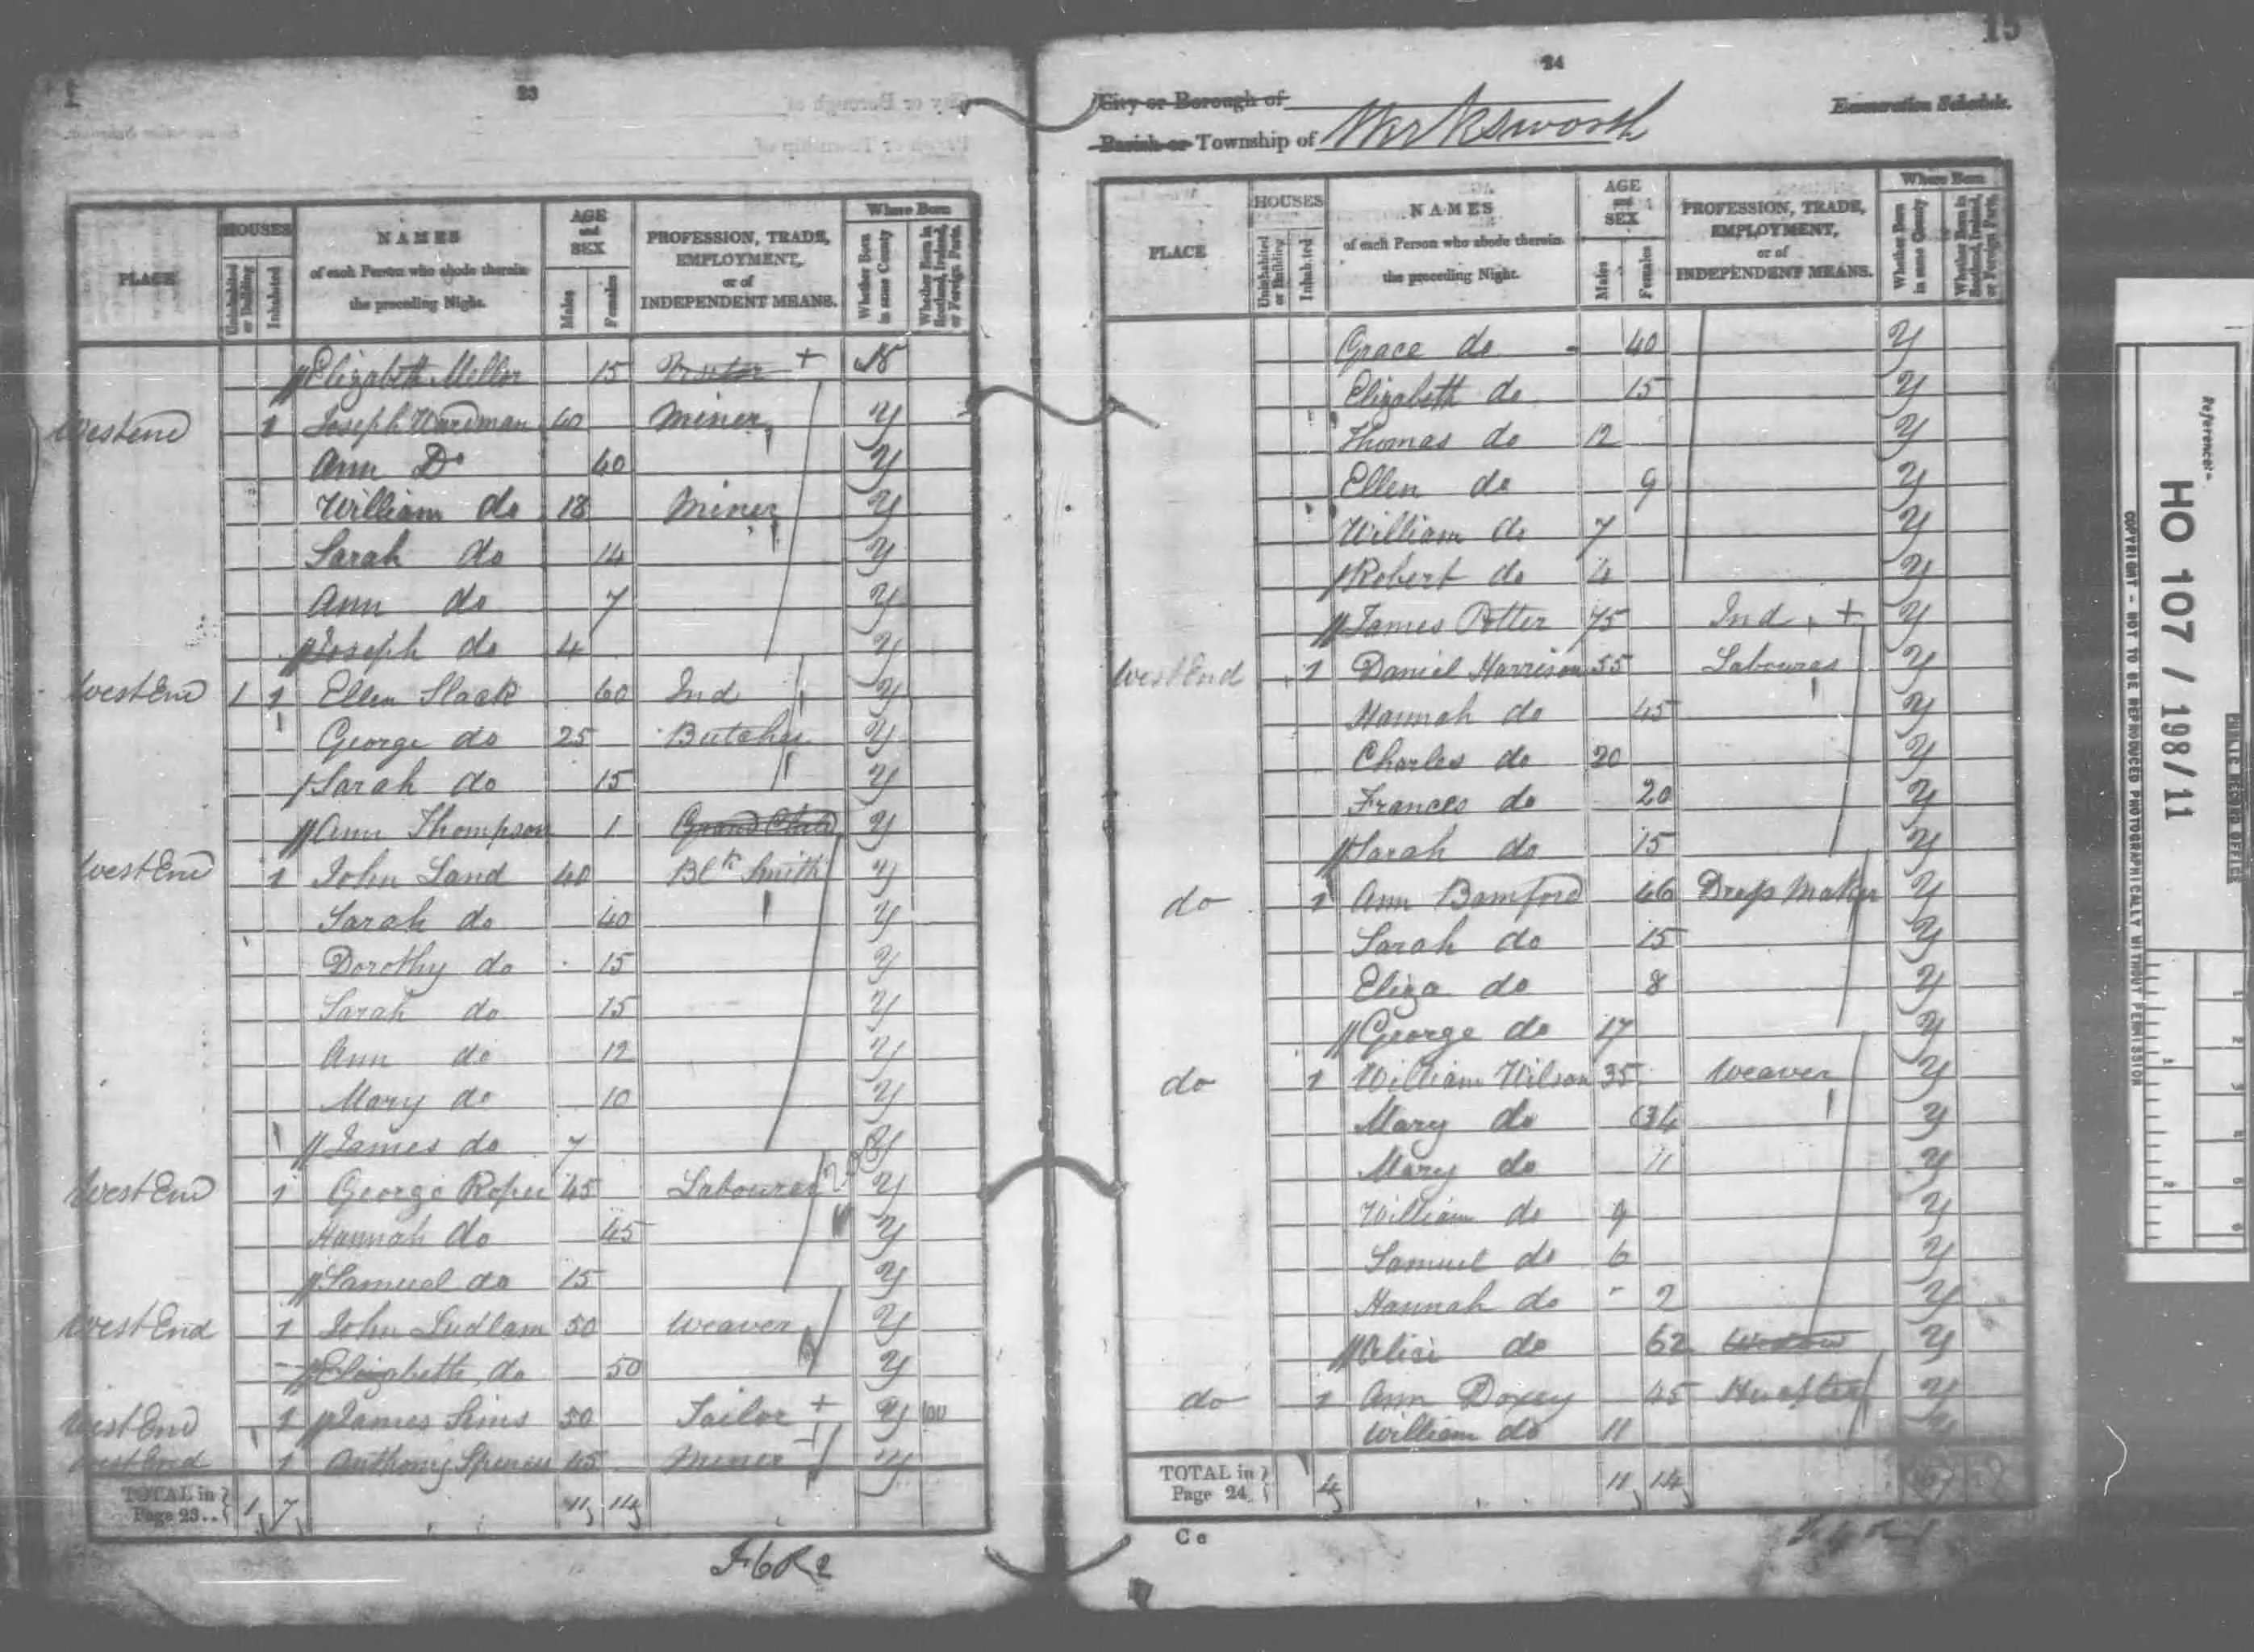 23
PLACE
HOUSES
Uninhabited or Building
Inhabited
NAMES
of each Person who abode therein
the preceding Night.
AGE
and
SEX
Males
Females
PROFESSION, TRADE,
EMPLOYMENT,
or of
INDEPENDENT MEANS.
Where Born
Whether Born in same County
Whether Born in Scotland, Ireland, or Foreign Parts.
Elizabeth Mellor 15 Visitor + N
Westend 1 Joseph Wardman 40 Miner Y
Ann Do 40 Y
William do 18 Miner Y
Sarah do 14 Y
Ann do 7 Y
Joseph do 4 Y
West End 1 1 Ellen Slack 60 Ind Y
George do 25 Butcher Y
Sarah do 15 Y
Ann Thompson 1 Grand Child Y
West End 1 John Land 40 Blk Smith Y
Sarah do 40 Y
Dorothy do 15 Y
Sarah do 15 Y
Ann do 12 Y
Mary do 10 Y
James do 7 Y
West End 1 George Roper 45 Labourer Y
Hannah do 45 Y
Samuel do 15 Y
West End 1 John Ludlam 50 Weaver Y
Elizabeth do 50 Y
West End 1 James Sims 50 Tailor + Y
West End 1 Anthony Spencer 45 Miner Y
TOTAL in Page 23.. 1 7 11 14
24
City or Borough of
Parish or Township of Wirksworth
Enumeration Schedule.
PLACE
HOUSES
Uninhabited or Building
Inhabited
NAMES
of each Person who abode therein
the preceding Night.
AGE
and
SEX
Males
Females
PROFESSION, TRADE,
EMPLOYMENT,
or of
INDEPENDENT MEANS.
Where Born
Whether Born in same County
Whether Born in Scotland, Ireland, or Foreign Parts.
Grace do 40 Y
Elizabeth do 15 Y
Thomas do 12 Y
Ellen do 9 Y
William do 7 Y
Robert do 4 Y
James Potter 75 Ind + Y
West End 1 Daniel Harrison 55 Labourer Y
Hannah do 45 Y
Charles do 20 Y
Frances do 20 Y
Sarah do 15 Y
do 1 Ann Bamford 46 Dress Maker Y
Sarah do 15 Y
Eliza do 8 Y
George do 17 Y
do 1 William Wilson 35 Weaver Y
Mary do 34 Y
Mary do 11 Y
William do 9 Y
Samuel do 6 Y
Hannah do 2 Y
Alice do 62 Widow Y
do 1 Ann Doxey 45 Y
William do 11
TOTAL in Page 24 4 11 14
Cc
Reference:-
HO 107 / 198/11
PUBLIC RECORD OFFICE
COPYRIGHT - NOT TO BE REPRODUCED PHOTOGRAPHICALLY WITHOUT PERMISSION